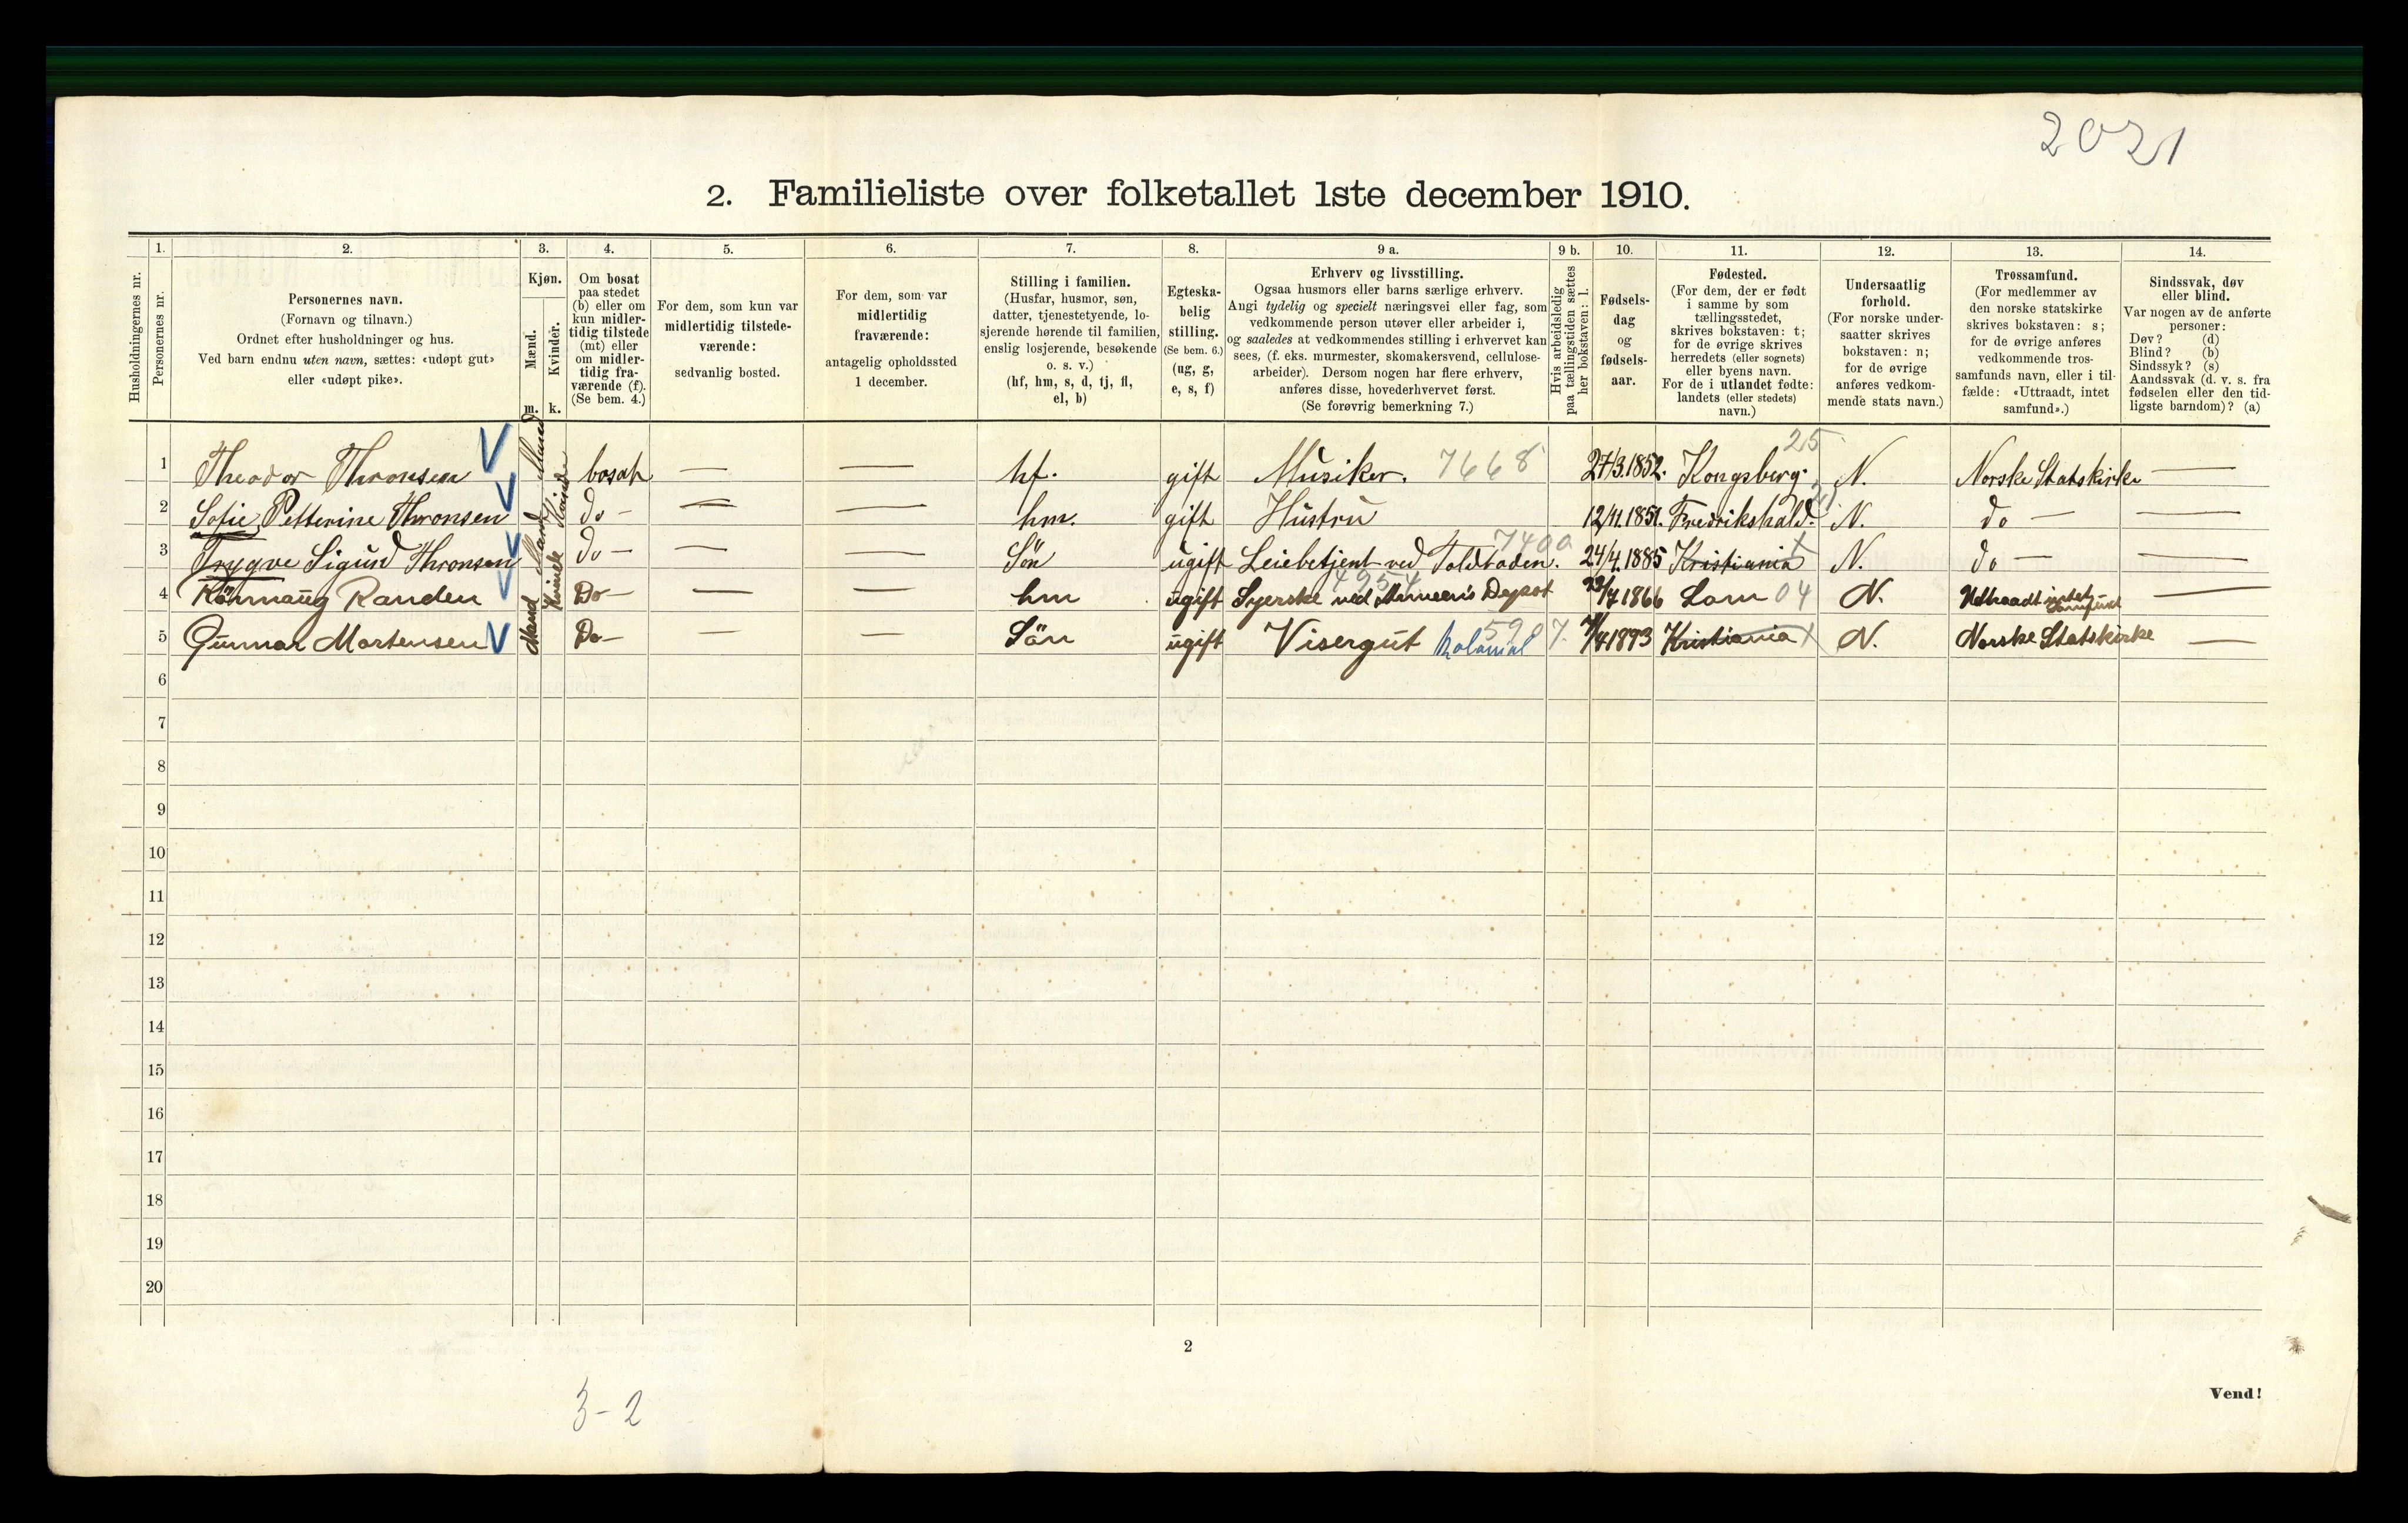 2021
2. Familieliste over folketallet 1ste december 1910.
Husholdningernes nr.
1. Personernes nr.
2. Personernes navn.
(Fornavn og tilnavn.)
Ordnet efter husholdninger og hus.
Ved barn endnu uten navn, sættes: «udøpt gut»
eller «udøpt pike».
3. Kjøn.
Mænd. m.
Kvinder. k.
4. Om bosat
paa stedet
(b) eller om
kun midler-
tidig tilstede
(mt) eller
om midler-
tidig fra-
værende (f).
(Se bem. 4.)
5. For dem, som kun var
midlertidig tilstede-
værende:
sedvanlig bosted.
6. For dem, som var
midlertidig
fraværende:
antagelig opholdssted
1 december.
7. Stilling i familien.
(Husfar, husmor, søn,
datter, tjenestetyende, lo-
sjerende hørende til familien,
enslig losjerende, besøkende
o. s. v.)
(hf, hm, s, d, tj, fl,
el, b)
8. Egteska-
belig
stilling.
(Se bem. 6.)
(ug, g,
e, s, f)
9 a. Erhverv og livsstilling.
Ogsaa husmors eller barns særlige erhverv.
Angi tydelig og specielt næringsvei eller fag, som
vedkommende person utøver eller arbeider i,
og saaledes at vedkommendes stilling i erhvervet kan
sees, (f. eks. murmester, skomakersvend, cellulose-
arbeider). Dersom nogen har flere erhverv,
anføres disse, hovederhvervet først.
(Se forøvrig bemerkning 7.)
9 b. Hvis arbeidsledig
paa tællingstiden sættes
her bokstaven: l.
10. Fødsels-
dag
og
fødsels-
aar.
11. Fødested.
(For dem, der er født
i samme by som
tællingsstedet,
skrives bokstaven: t;
for de øvrige skrives
herredets (eller sognets)
eller byens navn.
For de i utlandet fødte:
landets (eller stedets)
navn.)
12. Undersaatlig
forhold.
(For norske under-
saatter skrives
bokstaven: n;
for de øvrige
anføres vedkom-
mende stats navn.)
13. Trossamfund.
(For medlemmer av
den norske statskirke
skrives bokstaven: s;
for de øvrige anføres
vedkommende tros-
samfunds navn, eller i til-
fælde: «Uttraadt, intet
samfund».)
14. Sindssvak, døv
eller blind.
Var nogen av de anførte
personer:
Døv? (d)
Blind? (b)
Sindssyk? (s)
Aandssvak (d. v. s. fra
fødselen eller den tid-
ligste barndom)? (a)
1 Theodor Thronsen V Mand bosat — — hf. gift Musiker. 7668 27/3.1852. Kongsberg. 25 N. Norske Statskirke —
2 Sofie Petterine Thronsen V Kvinde do — — — hm. gift Hustru 12/11.1851. Fredrikshald. 21 N. do — —
3 Trygve Sigurd Thronsen V Mand do — — — Sön ugift Leiebetjent ved Toldboden. 7400 24/4.1885 Kristiania X N. do — —
4 Randen V Kvinde Do — — — hm ugift Syerske ved Armeens Depot 4954 /7 1866 Lom 04 N. Udtraadt intet samfund —
5 Gunnar Mortensen V Mand Do — — — Sön ugift Visergut Kolonial 5907. /4 1893 Kristiania X N. Norske Statskirke —
6
7
8
9
10
11
12
13
14
15
16
17
18
19
20
2
3-2
Vend!